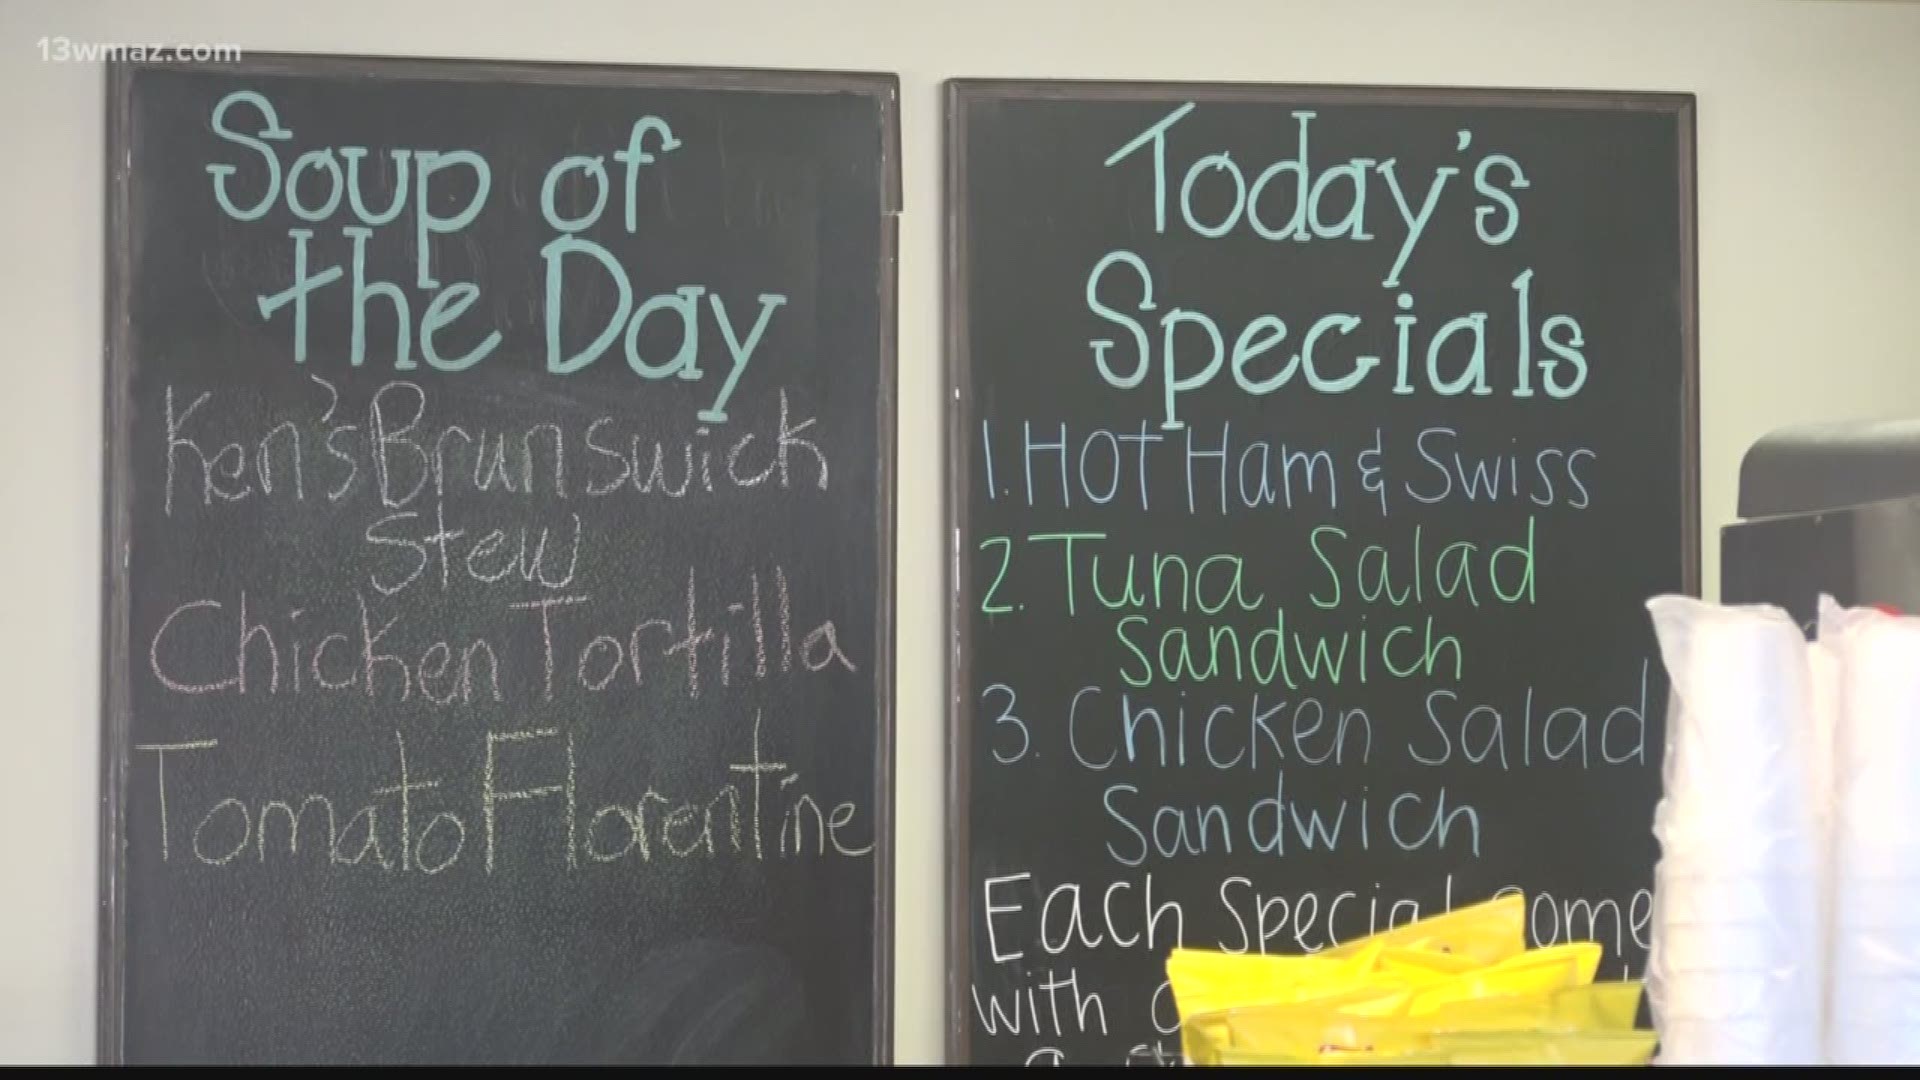 13wmaz.com
Soup of
the Day
Ken's Brunswick
Stew
Chicken Tortilla
Tomato Florentine
Today's
Specials
1. HOT Ham & Swiss
2. Tuna Salad
Sandwich
3. Chicken Salad
Sandwich
Each Special
with